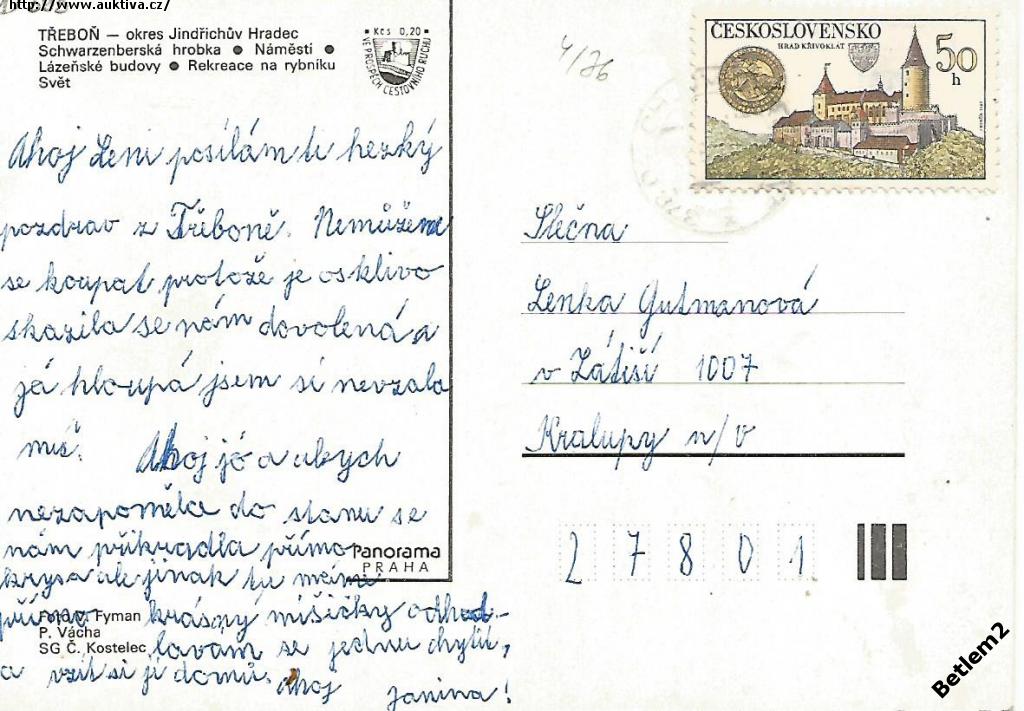 http://www.auktiva.cz/
TŘEBOŇ – okres Jindřichův Hradec
Schwarzenberská hrobka ● Náměstí ●
Lázeňské budovy ● Rekreace na rybníku
Svět
Kčs 0,20
VE PROSPĚCH CESTOVNÍHO RUCHU
4/76
ČESKOSLOVENSKO
HRAD KŘIVOKLÁT
50
h
Ahoj Leni posílám ti hezký
pozdrav z Třeboně. Nemůžeme
se koupat protože je osklivo
skazila se nám dovolená a
já hloupá jsem si nevzala
mič. Ahoj jó a abych
nezapoměla do stanu se
nám přikradla přímo
krysa ale jinak tu máme
přímo krásný mišičky odhod-
lavam se jednu chytit,
a vzít si jí domů. Ahoj Janina!
Slečna
Lenka Gutmanová
v Zátiší 1007
Kralupy n/V
27801
Panorama
PRAHA
Foto J. Fyman
P. Vácha
SG Č. Kostelec
Betlem2